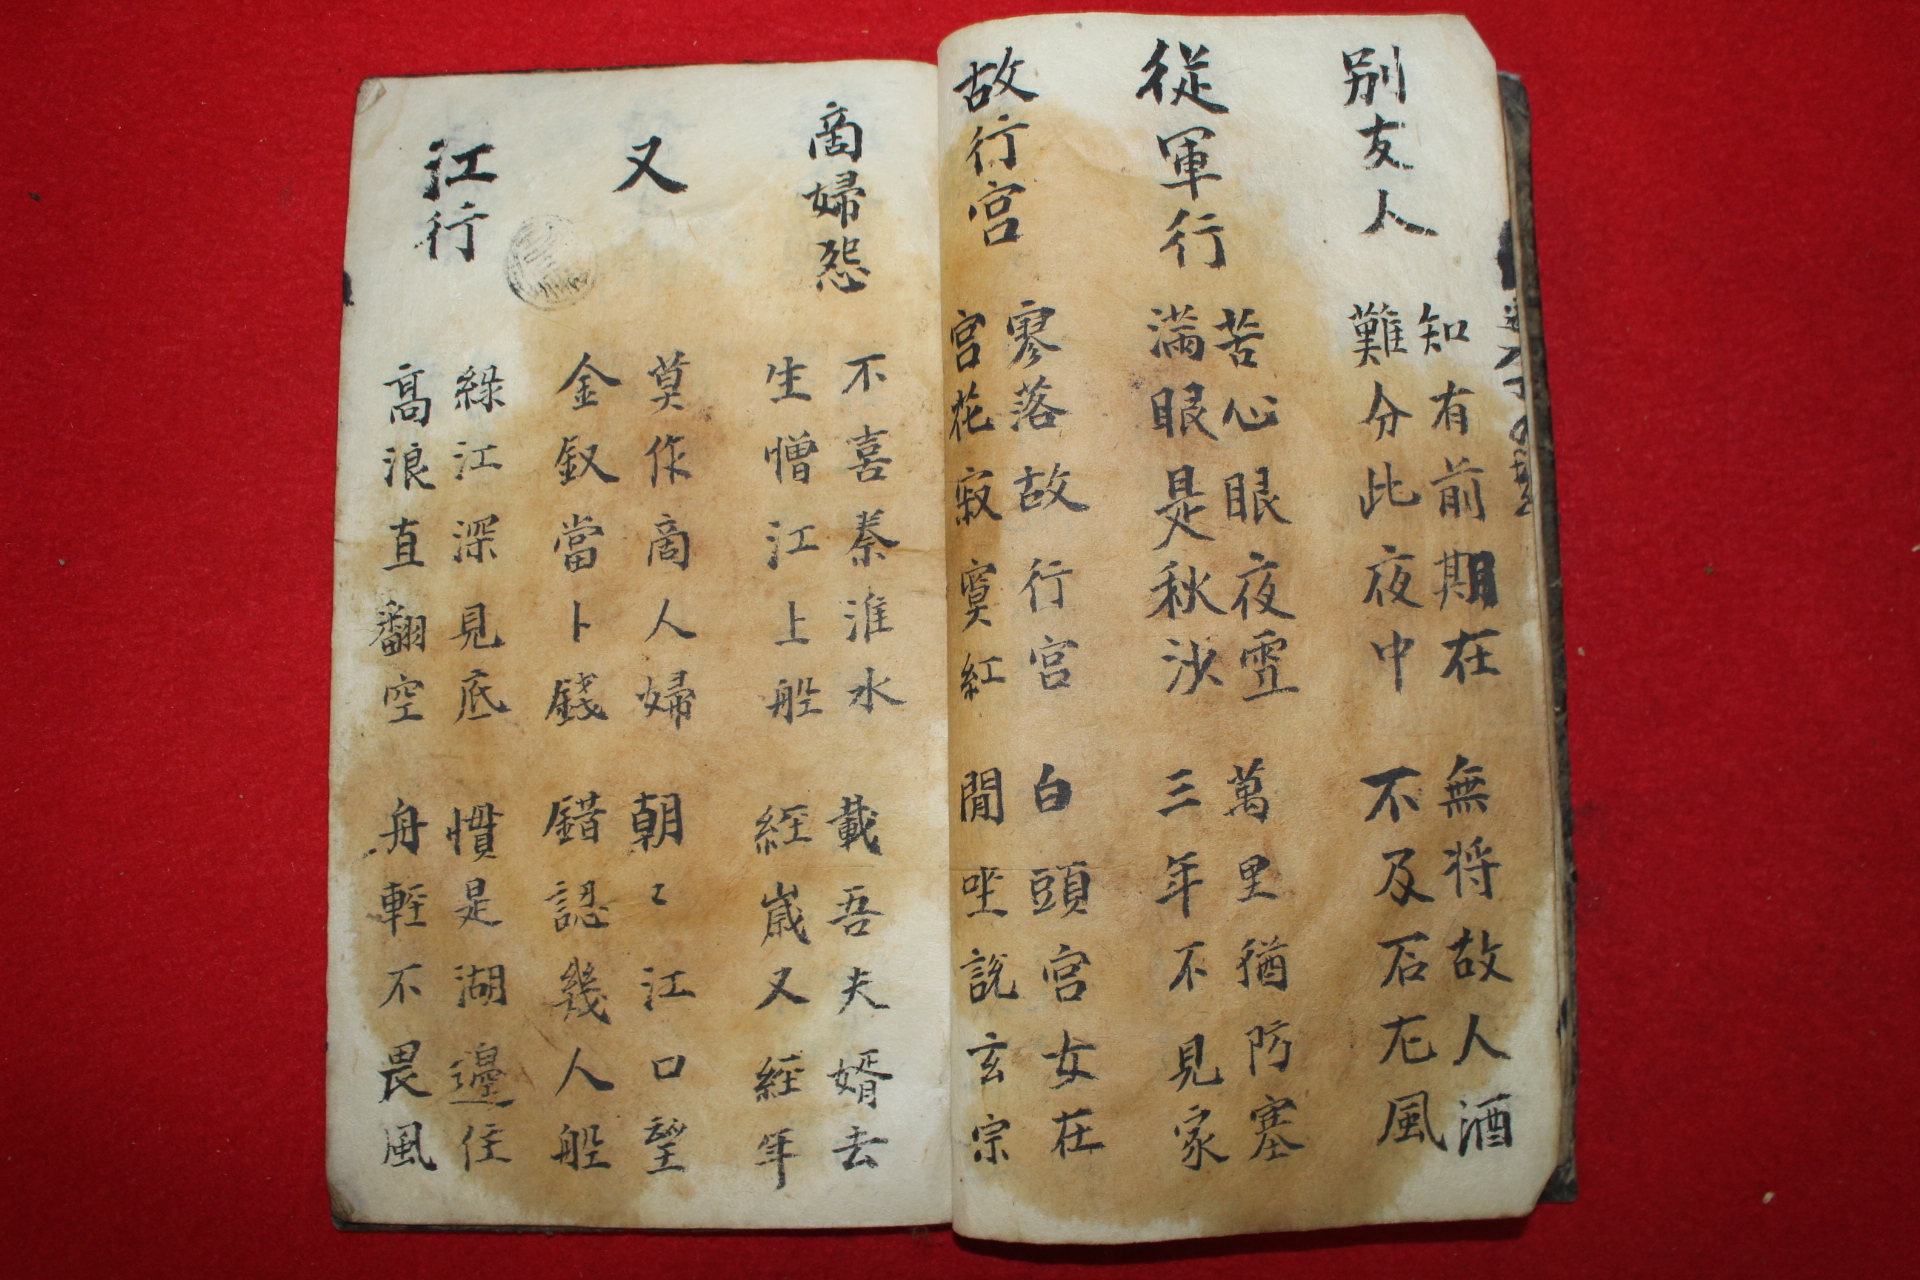 別友人
知有前期在
無将故人酒
難分此夜中
不及石尤風
從軍行
苦心眼夜雪
萬里猶防塞
滿眼是秋沙
三年不見家
故行宮
寥落故行宮
白頭宮女在
宮花寂寞紅
閒坐說玄宗
商婦怨
不喜秦淮水
載吾夫婿去
生憎江上船
經歲又經年
又
莫作商人婦
朝〻江口望
金釵當卜錢
錯認幾人船
江行
綠江深見底
慣是湖邊住
高浪直翻空
舟輕不畏風